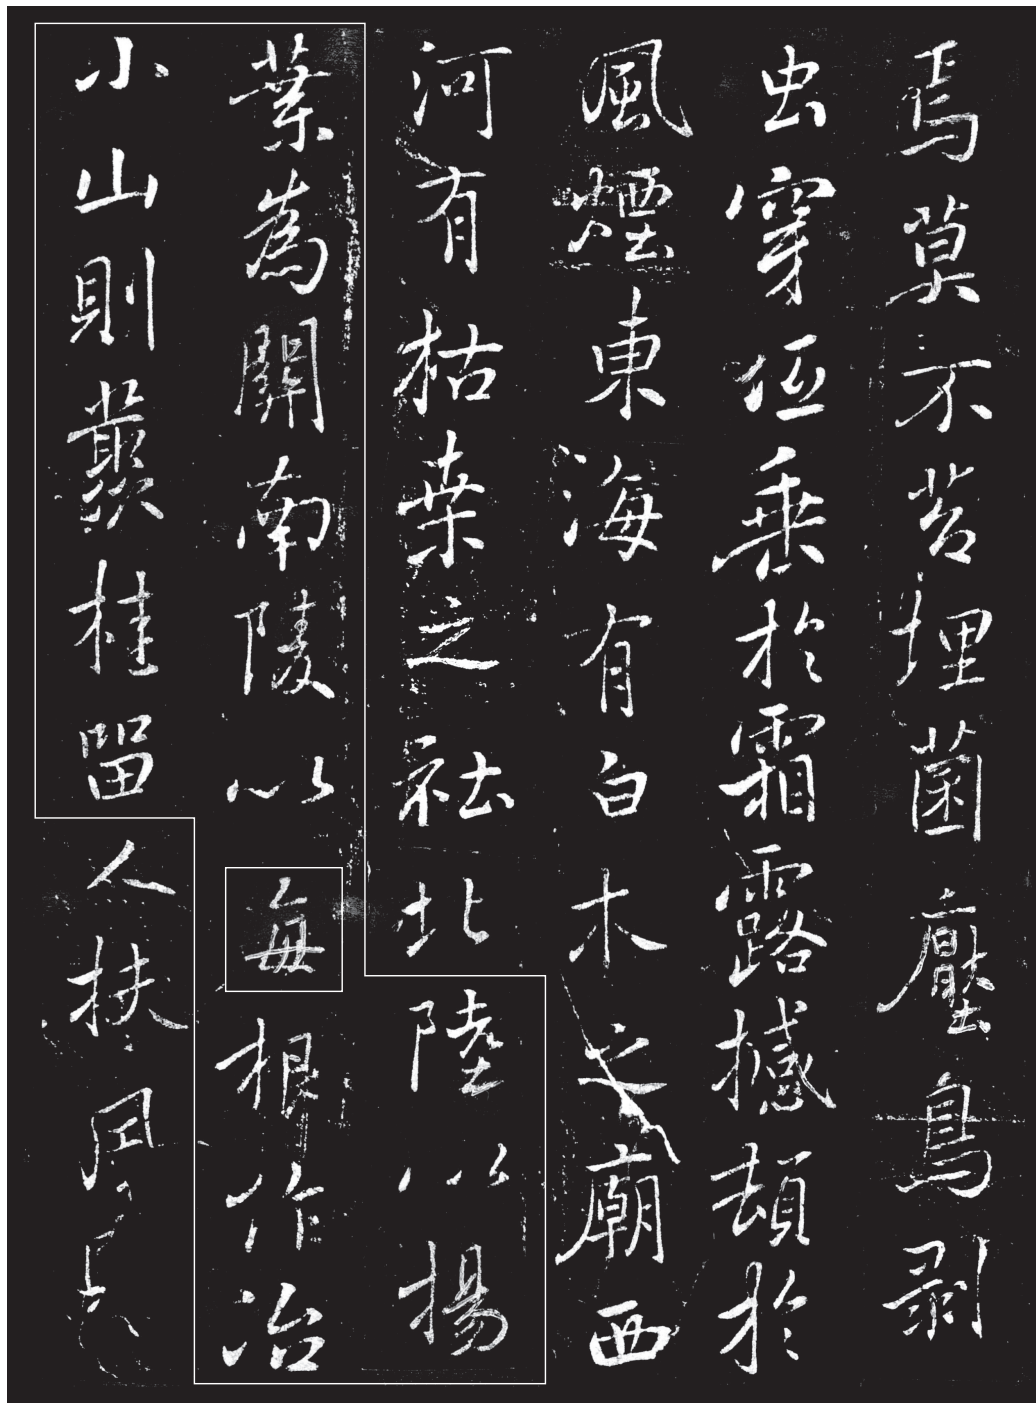 焉莫不苔埋菌壓鳥剝
虫穿低垂於霜露撼頓於
風煙東海有白木之廟西
河有枯桒之社北陸以揚
葉為關南陵以每根作冶
小山則叢桂留人扶風長